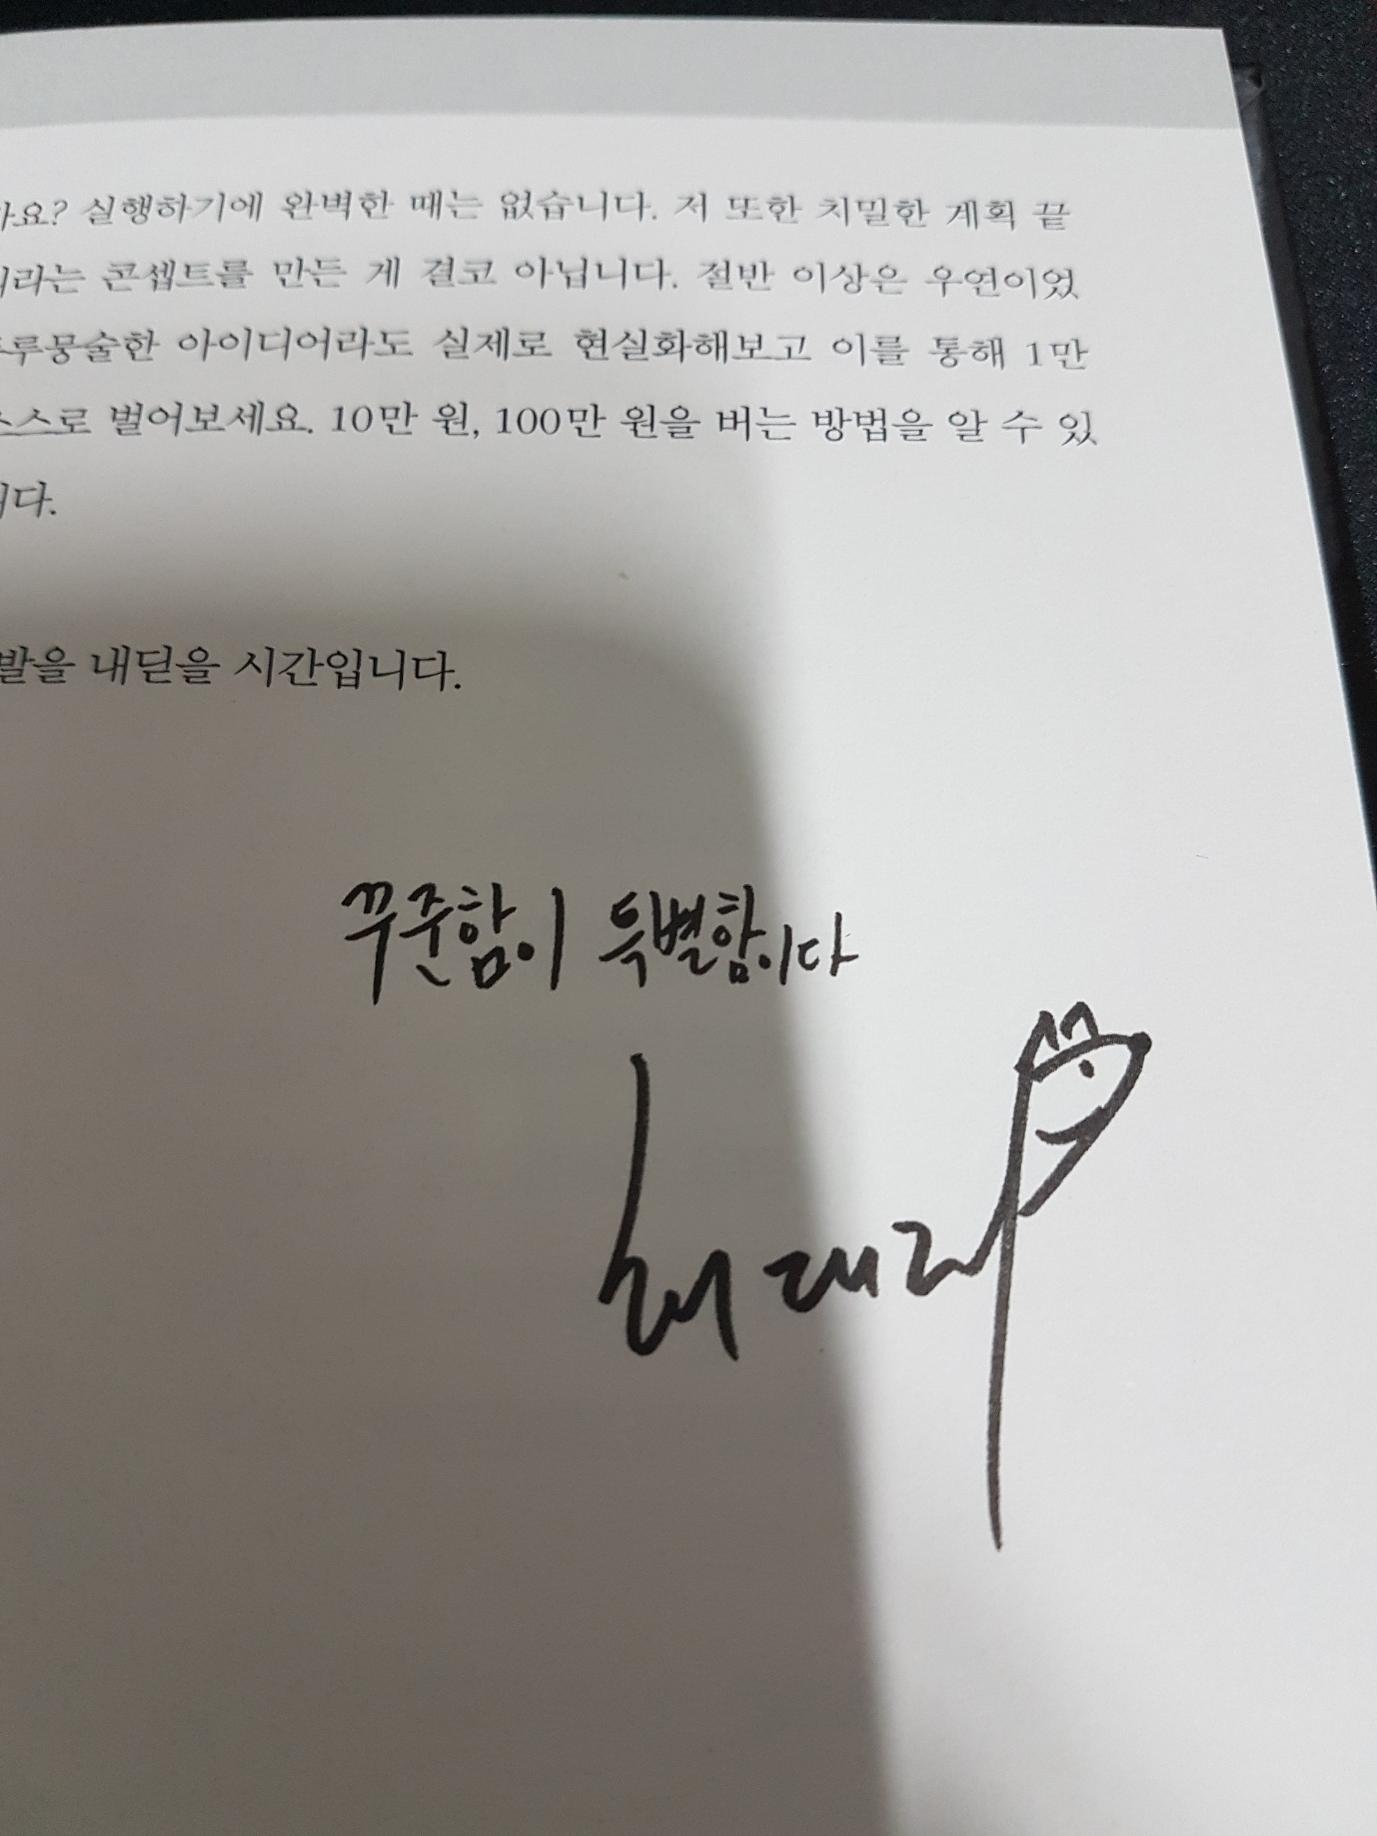 요? 실행하기에 완벽한 때는 없습니다. 저 또한 치밀한 계획 끝
라는 콘셉트를 만든 게 결코 아닙니다. 절반 이상은 우연이었
루뭉술한 아이디어라도 실제로 현실화해보고 이를 통해 1만
스로 벌어보세요. 10만 원, 100만 원을 버는 방법을 알 수 있
다.
발을 내딛을 시간입니다.
꾸준함이 특별함이다